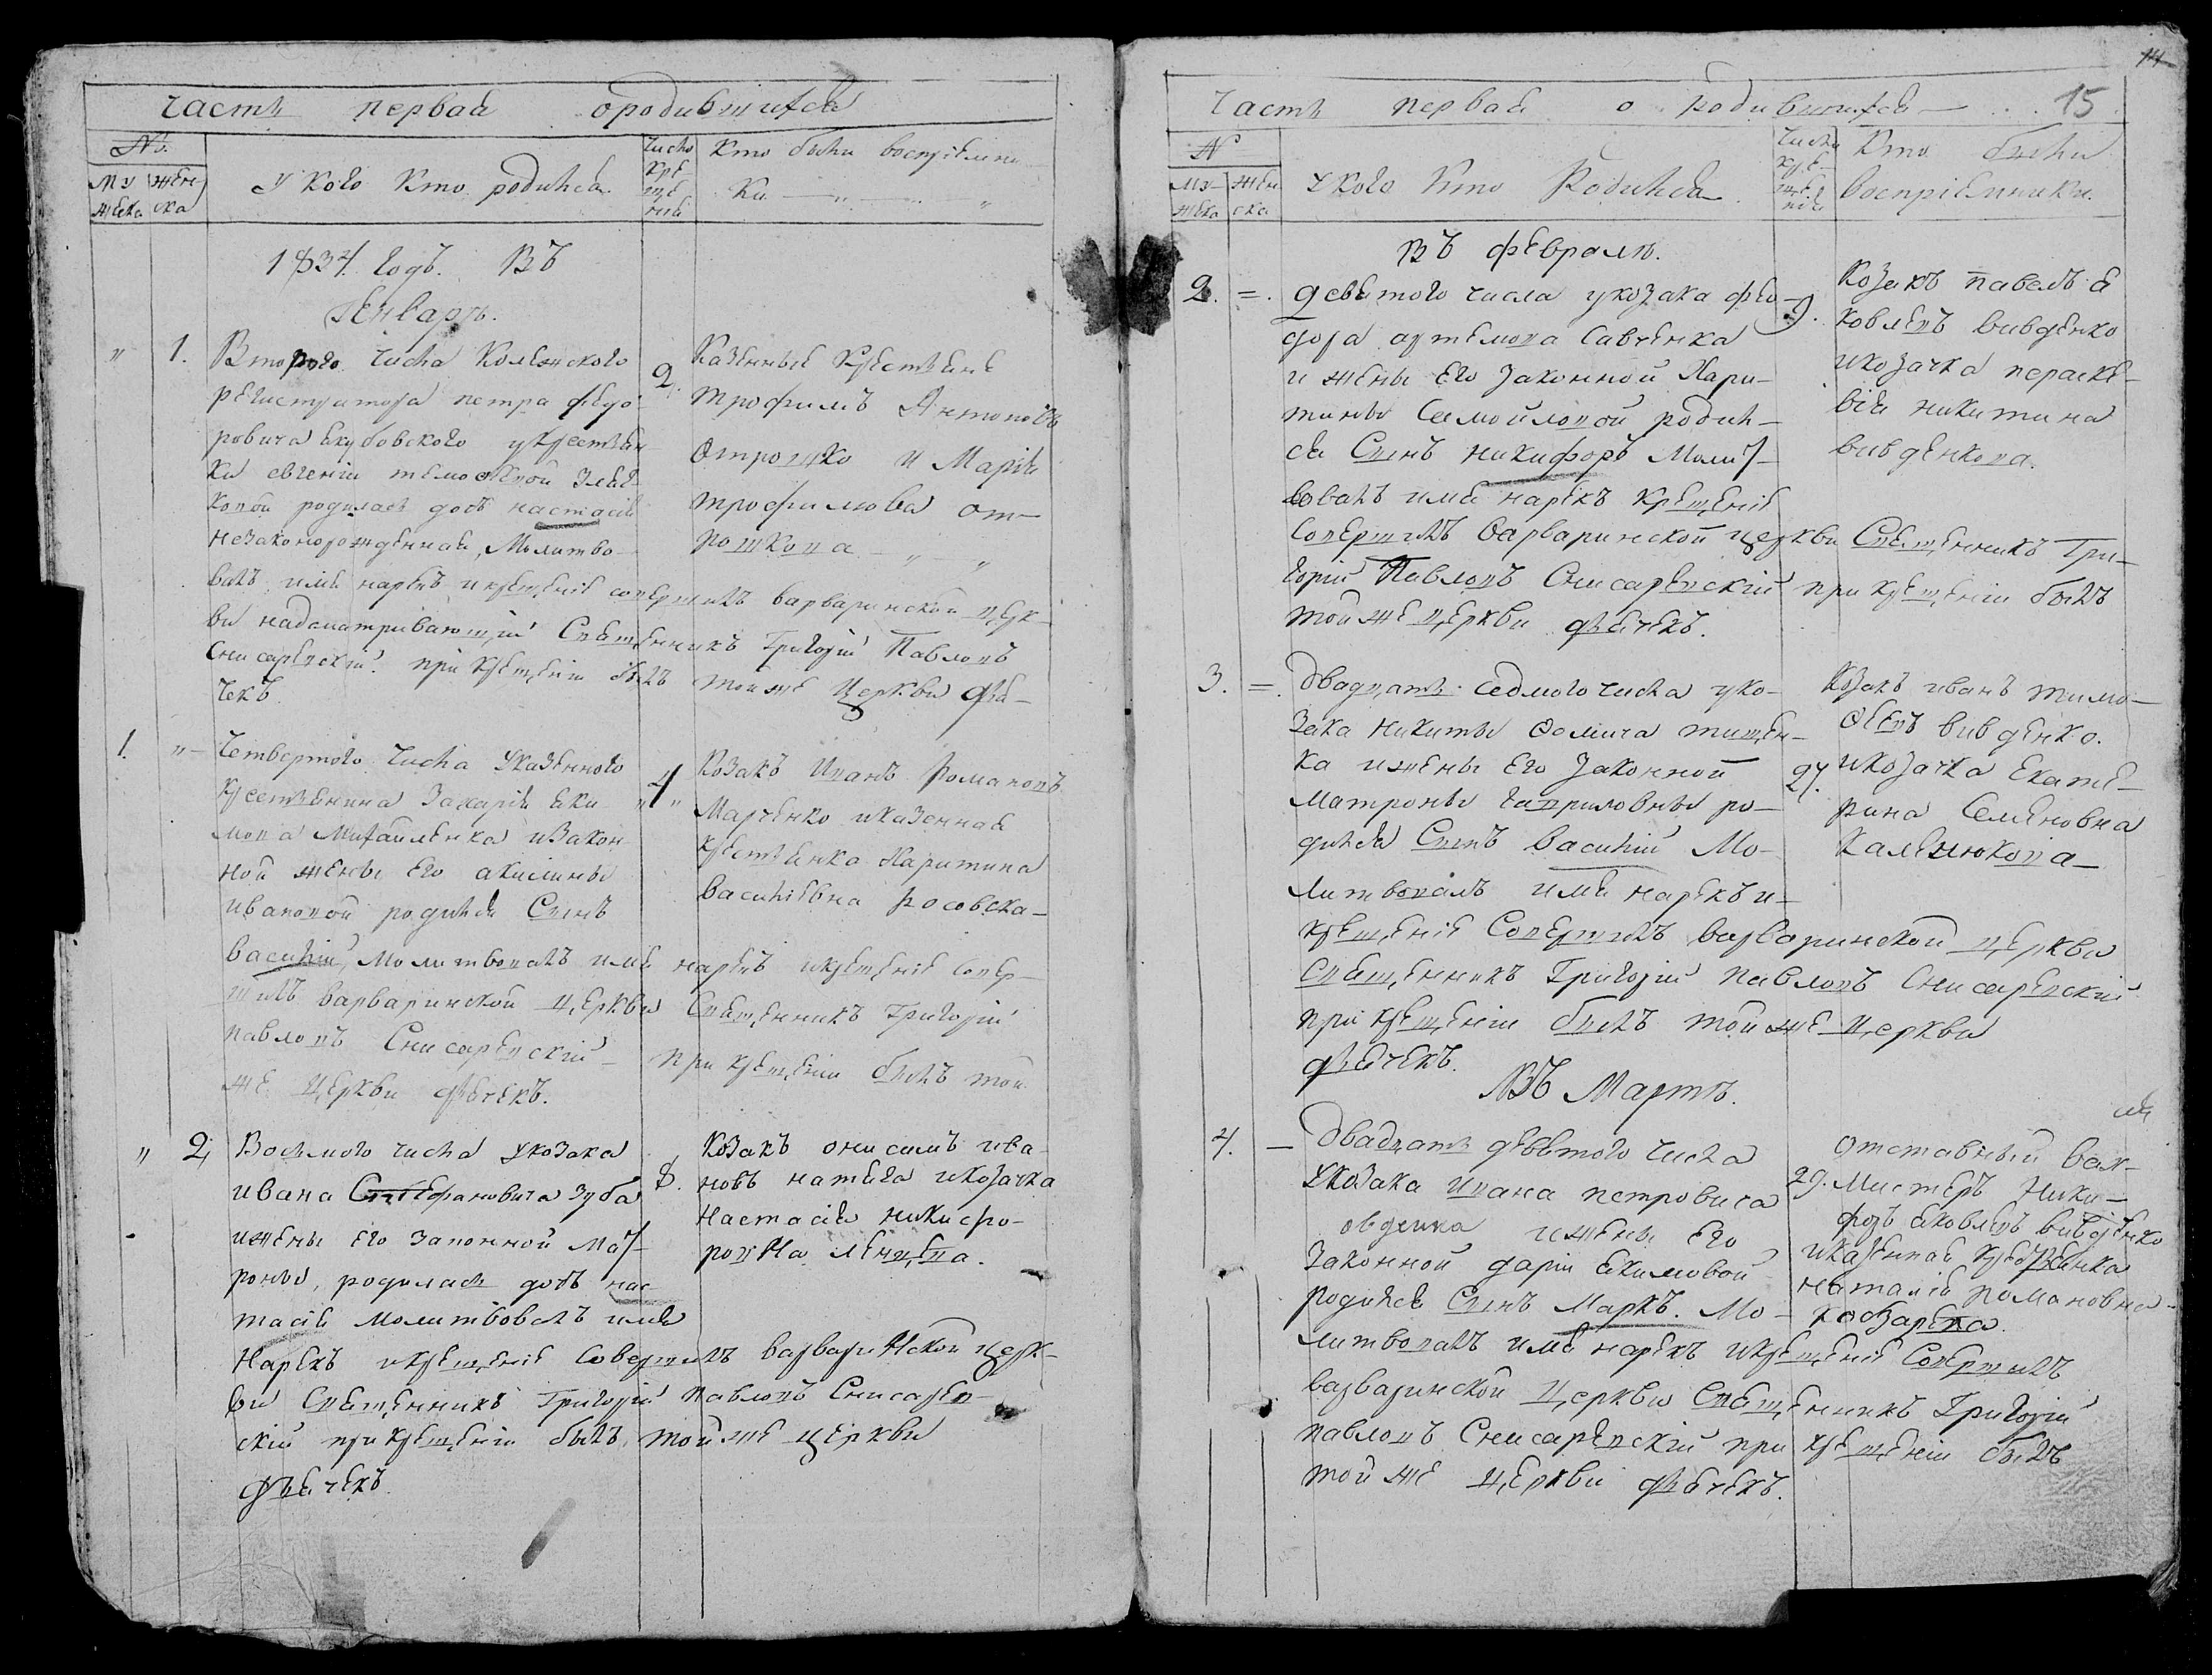 часть первая о родившихся
№.
Му
жеска
жен
ска
У кого кто родился
Число
Кре
ще
нія
Кто были воспріемни
ки — „ — „
1834. годъ. Въ
Генварѣ.
„ 1.
Второго числа Колежского
регистратора петра федо-
ровича Якубовского укрестьян
ки евгеніи
родилась дочь настасія
незаконорожденная, Молитво-
валъ имя нарекъ и крещеніе совершилъ варваринской церк-
ви надсматривающій Священникъ Григорій Павловъ
Снисаревскій. при крещеніи былъ той же Церкви дья-
чекъ
2.
Казенные крестьяне
трофимъ Антоновъ
Отрошко и Марія
трофимова от-
рошкова — „ „
1. „
Четвертого числа Указенного
крестьянина Захарія яки-
мова Михайленка изакон
ной жены его акилины
ивановой родился Сынъ
василій, Молитвовалъ имя нарекъ икрещеніе совер-
шилъ варваринской церкви Священникъ Григорій
павловъ Снисаревскій — при крещеніи былъ той
же церкви дьячекъ.
„ 4 „
Козакъ Иванъ Романовъ
Марченко иказенная
крестьянка Харитина
василіевна Росовска —
„ 2,
Восьмого числа укозака
ивана Стефановича Зуба
ижены его законной Мат-
роны, родилась дочь нас
тасія молитвовалъ имя
нарекъ икрещеніе совершилъ варваринской церк-
ви Священникъ Григорій павловъ Снисарев-
скій при крещеніи былъ той же церкви
дьячекъ.
8.
Козакъ онисимъ ива-
новъ натяга икозачка
Настасія никифо-
ровна
14
Часть первая о родившихся — 15
№
Му-
жеска
жен
ска
У кого кто Родился
Число
Кре-
ще
нія
Кто были
воспріемники.
Въ февралѣ.
2. =.
девятого числа укозака фео-
дора артемова Савченка
и жены его законной Хари-
тины Самойловой родил-
ся Сынъ никифоръ Молит-
вовалъ имя нарекъ крещеніе
совершилъ варваринской церкви Священникъ Гри-
горій Павловъ Снисаревскій при крещеніи былъ
той же церкви дьячекъ.
9.
Козакъ павелъ я
ковлевъ вивденко
икозачка параске-
вія никитина
вивденкова.
3. =.
Двадцать седмого числа уко-
зака никиты Фомича тищен-
ка ижены его законной
матроны гавриловны ро-
дился Сынъ василій Мо-
литвовалъ имя нарекъ и-
крещеніе Совершилъ варваринской церкви
Священникъ Григорій Павловъ Снисаревскій
при крещеніи былъ той же церкви
дьячекъ.
27.
Козакъ иванъ тимо-
феевъ вивденко.
икозачка Екате-
рина Семеновна
Каленюкова —
Въ Мартѣ.
4. —
Двадцать девятого числа
Укозака Ивана петровича
овденка ижены его
законной даріи якимовой
родился Сынъ Маркъ. Мо-
литвовалъ имя нарекъ икрещеніе Совершилъ
варваринской церкви Священникъ Григорій
павловъ Снисаревскій при крещеніи былъ
той же церкви дьячекъ.
29.
отставный вах-
мистеръ Ники-
форъ яковлевъ вивденко
иказенная крестьянка
наталія романовна